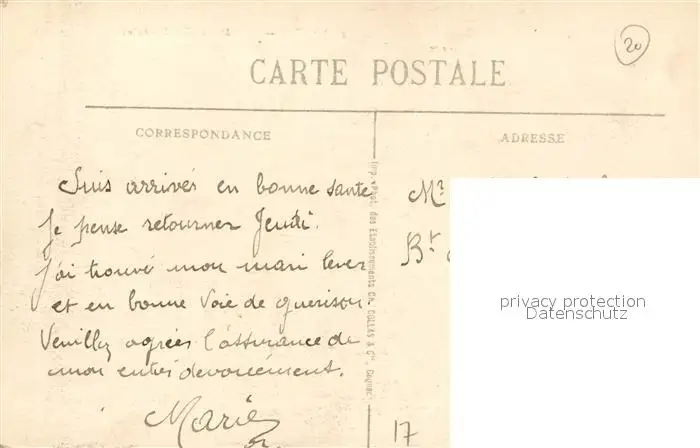 20
CARTE POSTALE
CORRESPONDANCE
ADRESSE
Suis arrivés en bonne santé
Je pense retourner Jeudi.
J'ai trouvé mon mari lever
et en bonne voie de guerison
Veuillez agréés l'assurance de
mon entiés devouément.
Marie
Imp. Phot. des Etablissements Ch. COLLAS & Cie, Cognac
Mr
Bt
17
privacy protection
Datenschutz